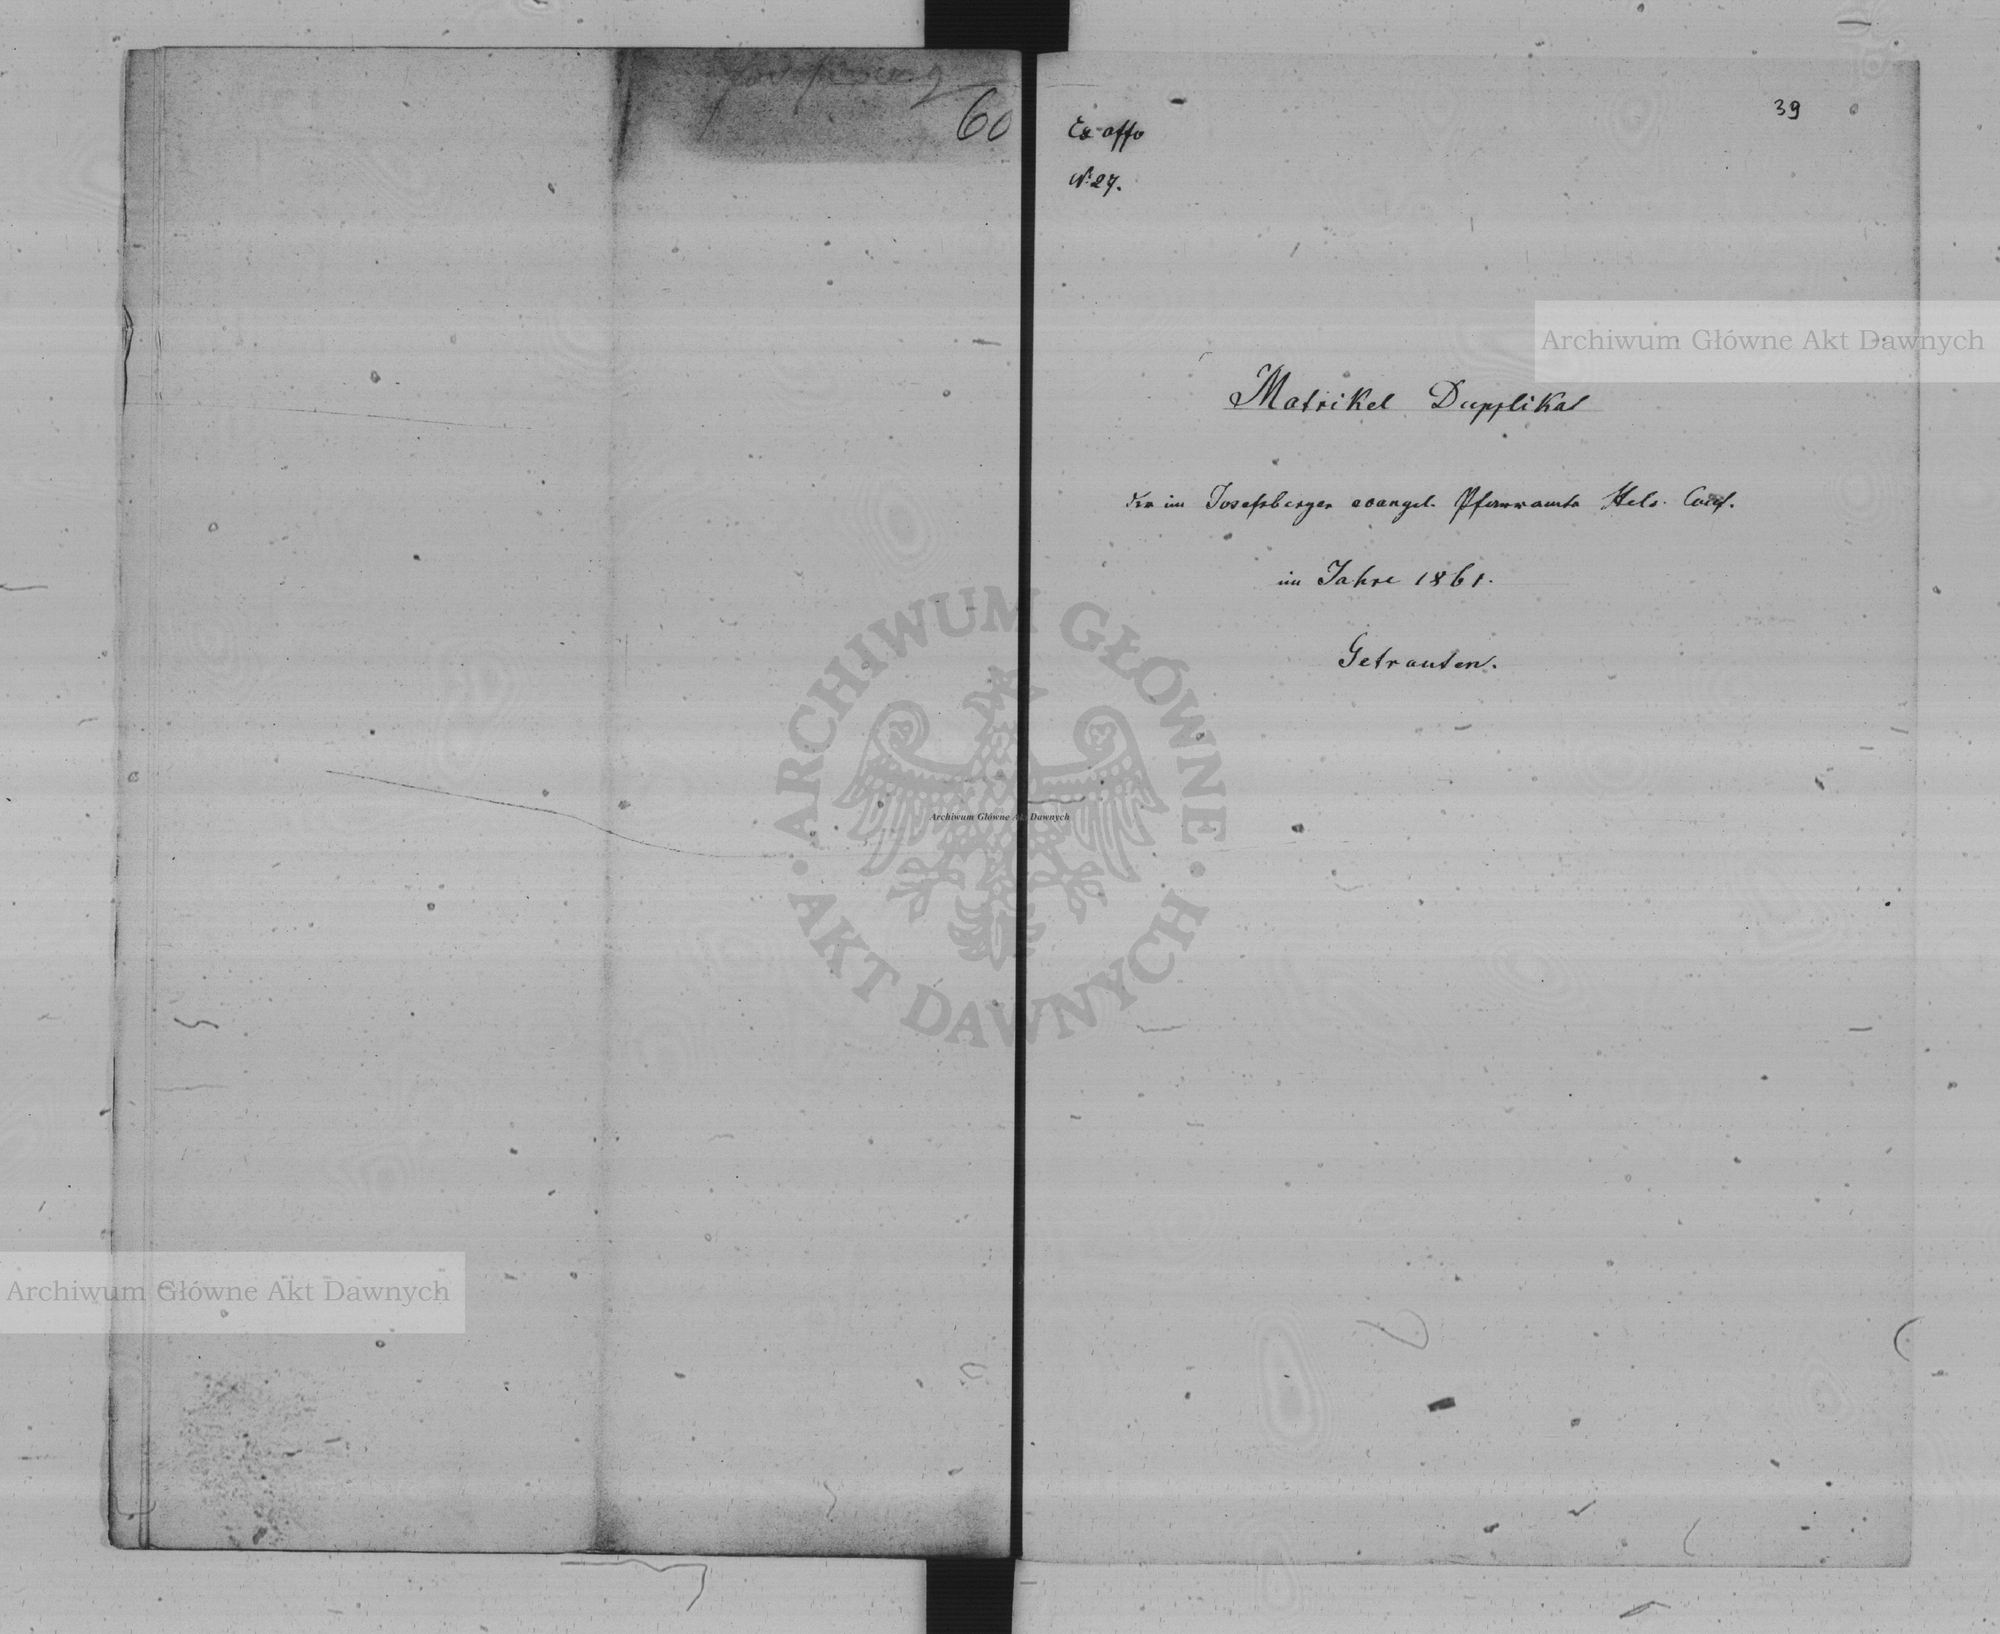 60
39
Ex offo
N: 27.
Matrikel Dupplikat
der im Josefsberger evangel. Pfarramte Helv. Conf.
im Jahre 1861.
Getrauten.
Archiwum Główne Akt Dawnych
ARCHIWUM GŁÓWNE
AKT DAWNYCH
Archiwum Główne Akt Dawnych
Archiwum Główne Akt Dawnych